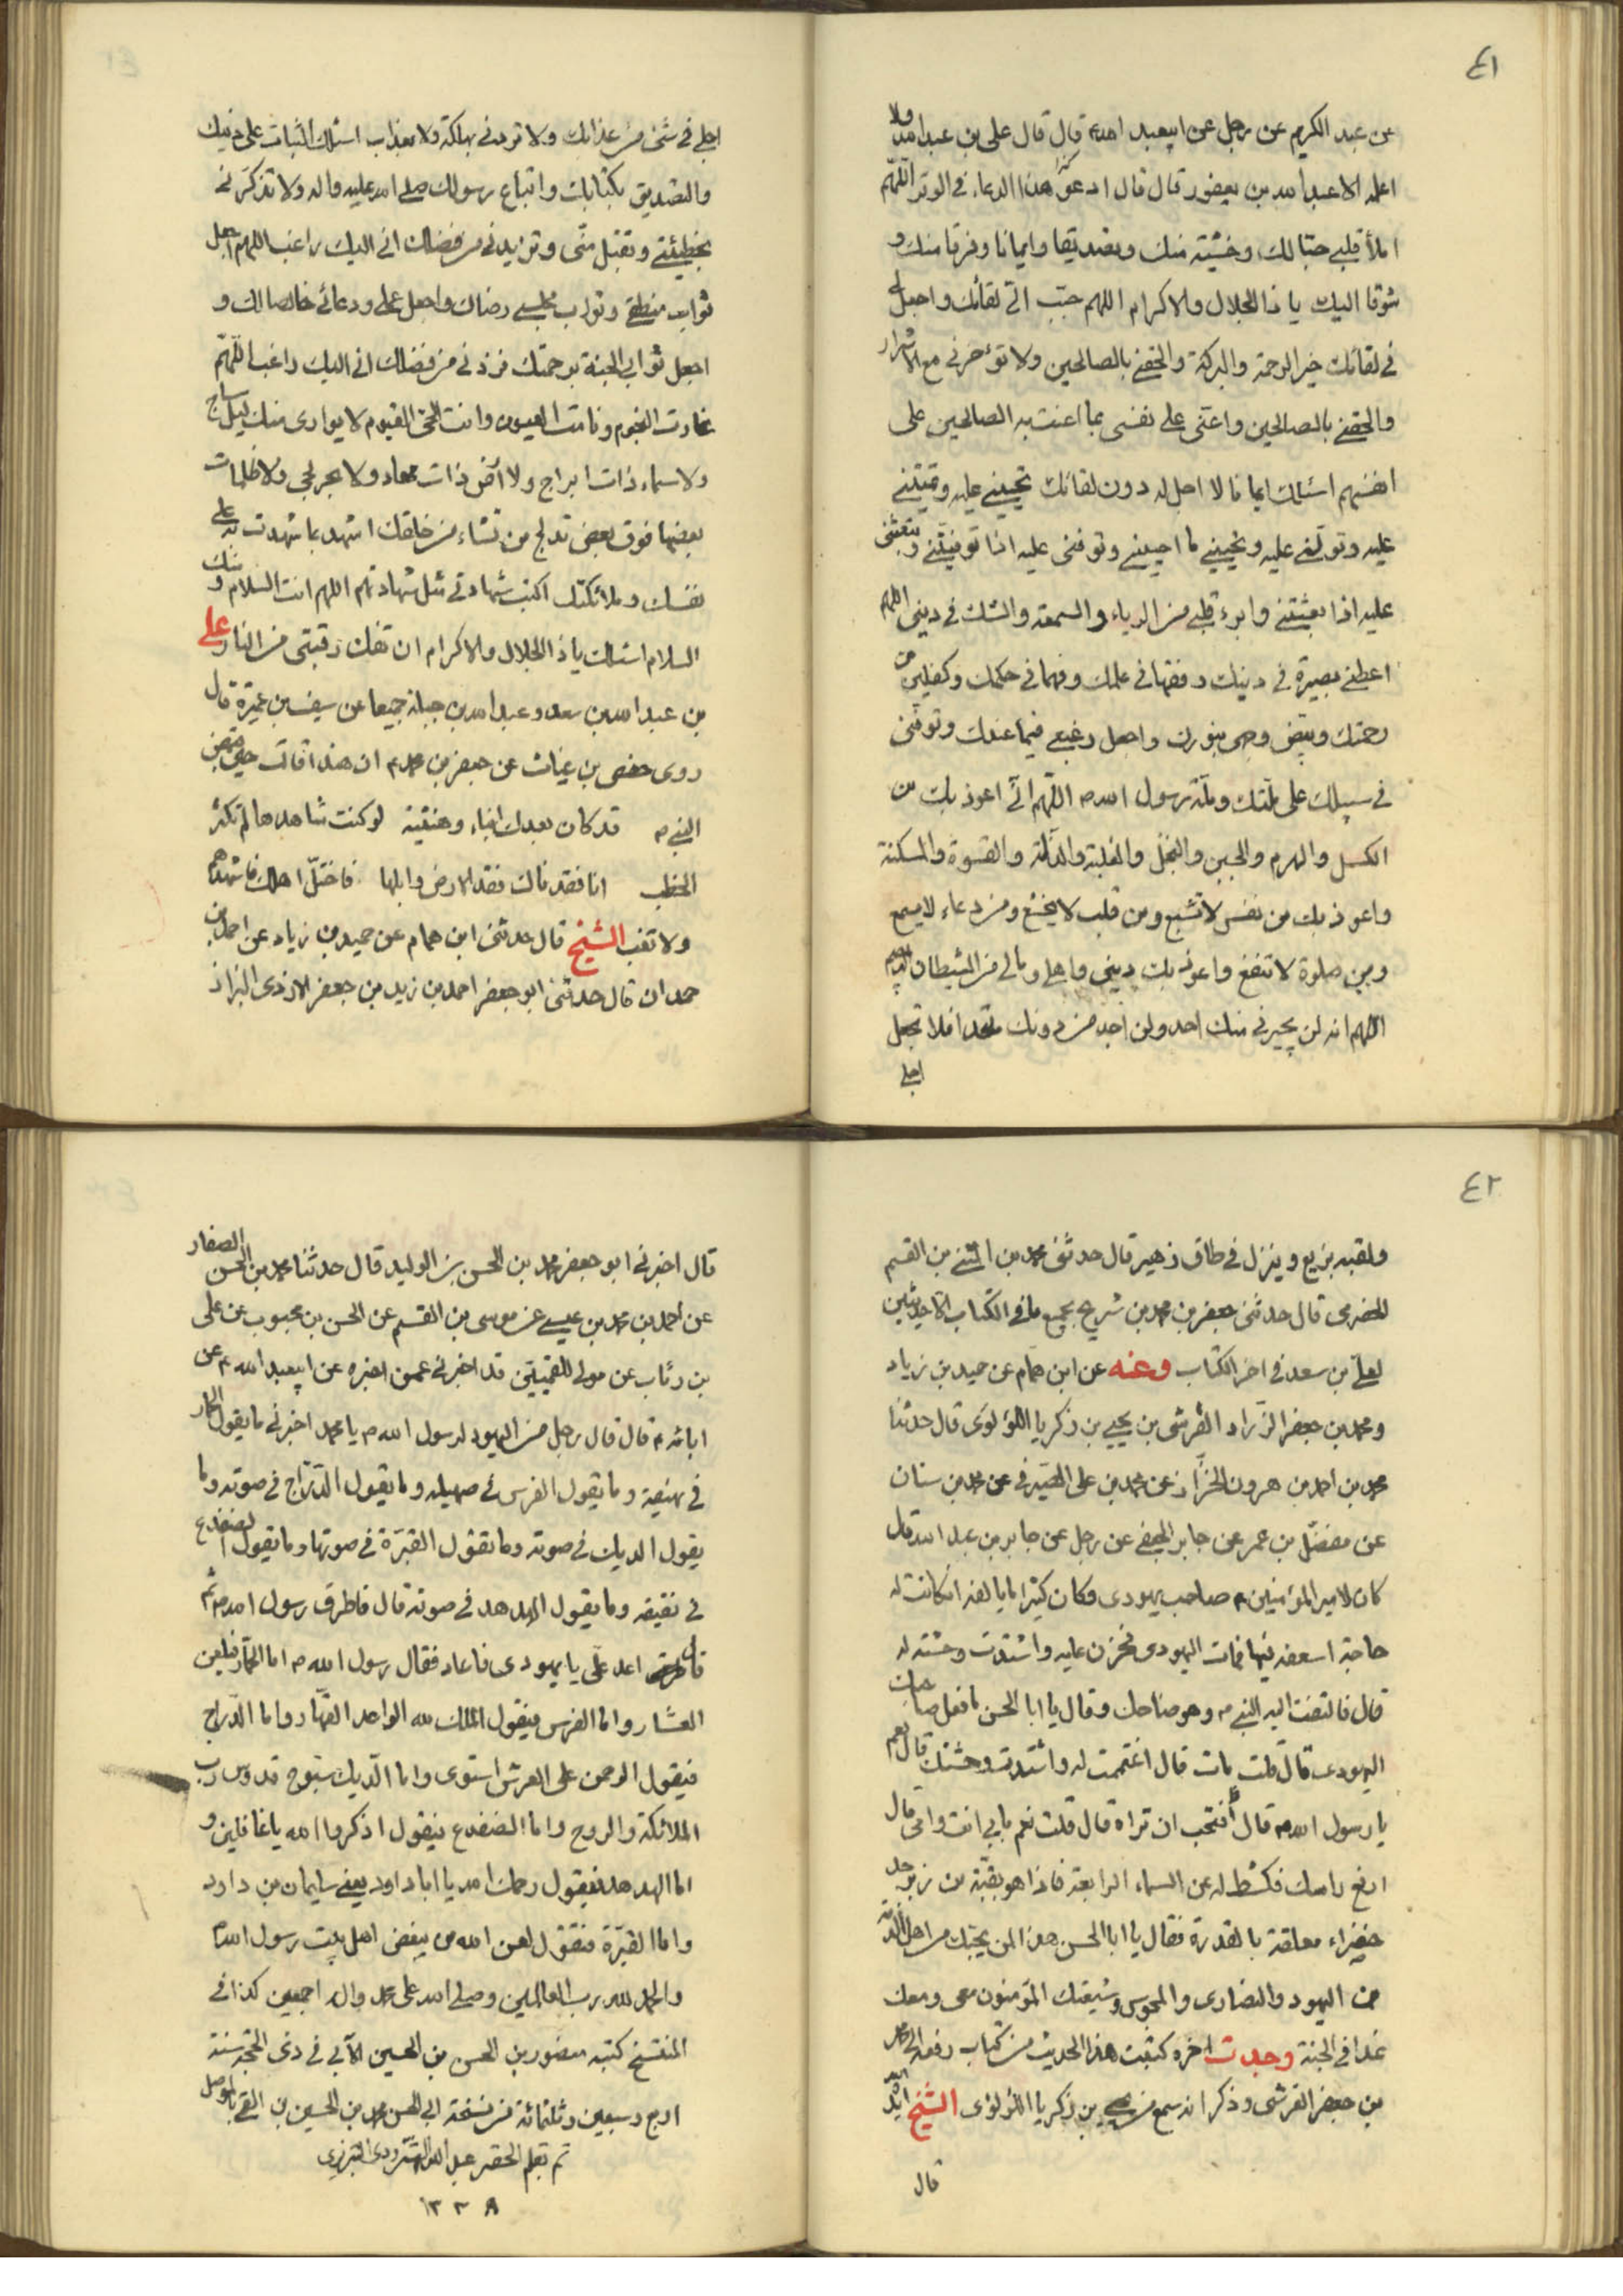 ٤١
عن عبد الكريم عن رجل عن ابيعبد الله قال قال علي بن عبد الله ولا
اعلمه الا عبد الله بن يعفور قال قال ادعوا هذا الدعاء في الوتر اللهم
املأ قلبي حبا لك وخشية منك وتصديقا وايمانا وفرقا منك و
شوقا اليك يا ذا الجلال والاكرام اللهم حبب الي لقائك واجعل لي
في لقائك خير الرحمة والبركة والحقني بالصالحين ولا تؤخرني مع الاشرار
والحقني بالصالحين واعني على نفسي بما اعنت به الصالحين على
انفسهم اسئلك ايمانا لا اجل له دون لقائك تحييني عليه وتميتني
عليه وتولني عليه وتحييني ما احييتني وتوفني عليه اذا توفيتني وتبعثني
عليه اذا بعثتني وابرء قلبي من الرياء والسمعة والشك في ديني اللهم
اعطني بصيرة في دينك وفقها في علمك وفهما في حكمك وكفلين من
رحمتك وبيض وجهي بنورك واجعل رغبتي فيما عندك وتوفني
في سبيلك على ملتك وملة رسول الله ص اللهم اني اعوذ بك من
الكسل والهرم والجبن والبخل والغلبة والذلة والقسوة والمسكنة
واعوذ بك من نفس لا تشبع ومن قلب لا يخشع ومن دعاء لا يسمع
ومن صلوة لا تنفع واعوذ بك ديني واهلي ومالي من الشيطان الرجيم
اللهم انه لن يجيرني منك احد ولن اجد من دونك ملتحدا فلا تجعل
اجلي
اجلي في شئ من عذابك ولا تردني بهلكة ولا بعذاب اسئلك الثبات على دينك
والتصديق بكتابك واتباع رسولك صلى الله عليه واله ولا تذكرني
بخطيئتي وتقبل مني وتزيدني من فضلك اني اليك راغب اللهم اجعل
ثواب منطقي وثواب مجلسي رضاك واجعل عملي ودعائي خالصا لك و
اجعل ثوابي الجنة برحمتك وزدني من فضلك اني اليك راغب اللهم
غارت النجوم ونامت العيون وانت الحي القيوم لا يوارى منك ليل ساج
ولا سماء ذات ابراج ولا ارض ذات مهاد ولا بحر لجي ولا ظلمات
بعضها فوق بعض تدلج من تشاء من خلقك اشهد بما شهدت به على
نفسك وملائكتك اكتب شهادتي مثل شهادتهم اللهم انت السلام ومنك
السلام اسئلك يا ذا الجلال والاكرام ان تفك رقبتي من النار علي
بن عبد الله بن سعد وعبد الله بن جبلة جميعا عن سيف بن عميرة قال
روى حفص بن غياث عن جعفر بن محمد ع ان هندا قالت حين قبض
النبي ص قد كان بعدك انباء وهنبثة لو كنت شاهدها لم تكثر
الخطب انا فقدناك فقد الارض وابلها فاختل اهلك فاشهدهم
ولا تغب الشيخ قال حدثني ابن همام عن حميد بن زياد عن احمد بن
حمدان قال حدثني ابو جعفر احمد بن زيد بن جعفر الازدي البزاز
٤٢
ولقبه بزيع وينزل في طاق زهير قال حدثني محمد بن المثنى بن القسم
الحضرمي قال حدثني جعفر بن محمد بن شريح بجميع ما في الكتاب الا حديثين
لعلي بن سعد في اخر الكتاب وعنه عن ابن همام عن حميد بن زياد
ومحمد بن جعفر الزراد القرشي بن يحيى بن زكريا اللؤلؤي قال حدثنا
محمد بن احمد بن هرون الخزاز عن محمد بن علي الصيرفي عن محمد بن سنان
عن مفضل بن عمر عن جابر الجعفي عن رجل عن جابر بن عبد الله قال
كان لامير المؤمنين ع صاحب يهودي وكان كثيرا ما يالفه ان كانت له
حاجة اسعفه فيها فمات اليهودي فحزن عليه واشتدت وحشته له
قال فالتفت اليه النبي ص وهو ضاحك وقال يا ابا الحسن ما فعل صاحبك
اليهودي قال قلت مات قال اغتممت له واشتدت وحشتك قال نعم
يا رسول الله ص قال أفتحب ان تراه قال قلت نعم بابي انت وامي قال
ارفع راسك فكشط له عن السماء الرابعة فاذا هو بقبة من زبرجد
خضراء معلقة بالقدرة فقال يا ابا الحسن هذا لمن يحبك من اهل الذمة
من اليهود والنصارى والمجوس وشيعتك المؤمنون معي ومعك
غدا في الجنة وجدت اخره كتبت هذا الحديث من كتاب رفعه الى محمد
بن جعفر القرشي وذكر انه سمع من يحيى بن زكريا اللؤلؤي الشيخ ايده الله
قال
قال اخبرني ابو جعفر محمد بن الحسن بن الوليد قال حدثنا محمد بن الحسن الصفار
عن احمد بن محمد بن عيسى عن موسى بن القسم عن الحسن بن محبوب عن علي
بن رئاب عن مولى للقميين قد اخبرني عمن اخبره عن ابيعبد الله ع عن
ابائه ع قال قال رجل من اليهود لرسول الله ص يا محمد اخبرني ما يقول الحمار
في نهيقه وما يقول الفرس في صهيله وما يقول الدراج في صوته وما
يقول الديك في صوته وما تقول القبرة في صوتها وما يقول الضفدع
في نقيقه وما يقول الهدهد في صوته قال فاطرق رسول الله ص ثم
قال اعد علي يا يهودي فاعاد فقال رسول الله ص اما الحمار فيلعن
العشار واما الفرس فيقول الملك لله الواحد القهار واما الدراج
فيقول الرحمن على العرش استوى واما الديك سبوح قدوس رب
الملائكة والروح واما الضفدع فيقول اذكروا الله يا غافلين و
اما الهدهد فيقول رحمك الله يا ابا داود يعني سليمان بن داود
واما القبرة فتقول لعن الله من يبغض اهل بيت رسول الله
والحمد لله رب العالمين وصلى الله على محمد واله اجمعين كذا في
المنتسخ كتبه منصور بن الحسن بن الحسين الابي في ذي الحجة سنة
اربع وسبعين وثلثمائة من نسخة ابي الحسن محمد بن الحسن بن الحسين بن القمي بالموصل
تم بقلم الحقير عبد الله التبريزي
١٣٣٨